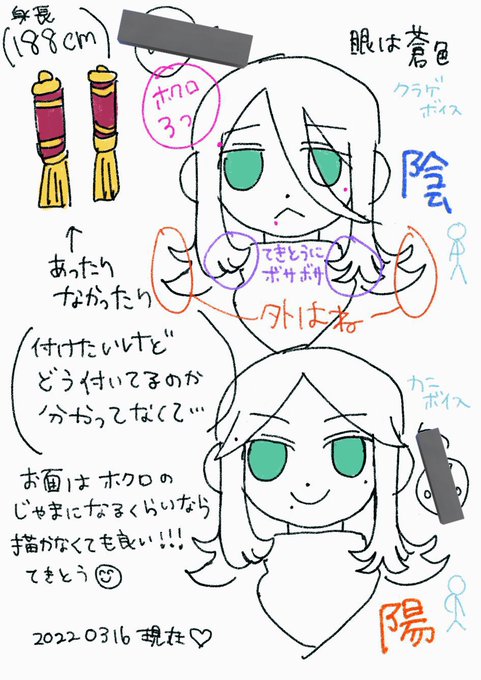 身長
(188cm)
眼は蒼色
クラゲ
ボイス
ホクロ
3つ
陰
てきとうに
ボサボサ
外はね
↑
あったり
なかったり
(付けたいけど
どう付いてるのか
分かってなくて…)
カニ
ボイス
お面はホクロの
じゃまになるくらいなら
描かなくても良い!!!
てきとう
陽
20220316 現在♡